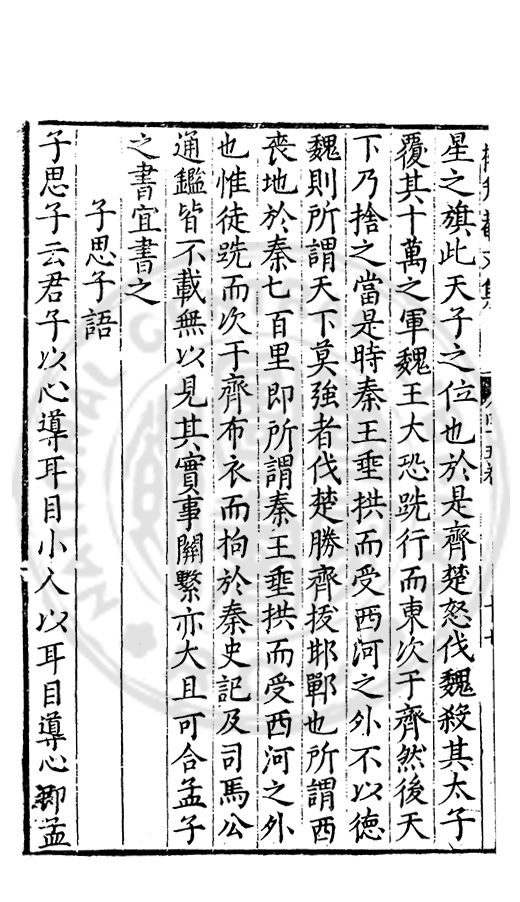 星之旗此天子之位也於是齊楚怒伐魏殺其太子
覆其十萬之軍魏王大恐跣行而東次于齊然後天
下乃捨之當是時秦王垂拱而受西河之外不以德
魏則所謂天下莫強者伐楚勝齊拔邯鄲也所謂西
喪地於秦七百里即所謂秦王垂拱而受西河之外
也惟徒跣而次于齊布衣而拘於秦史記及司馬公
通鑑皆不載無以見其實事關繫亦大且可合孟子
之書宜書之
子思子語
子思子云君子以心導耳目小人以耳目導心即孟